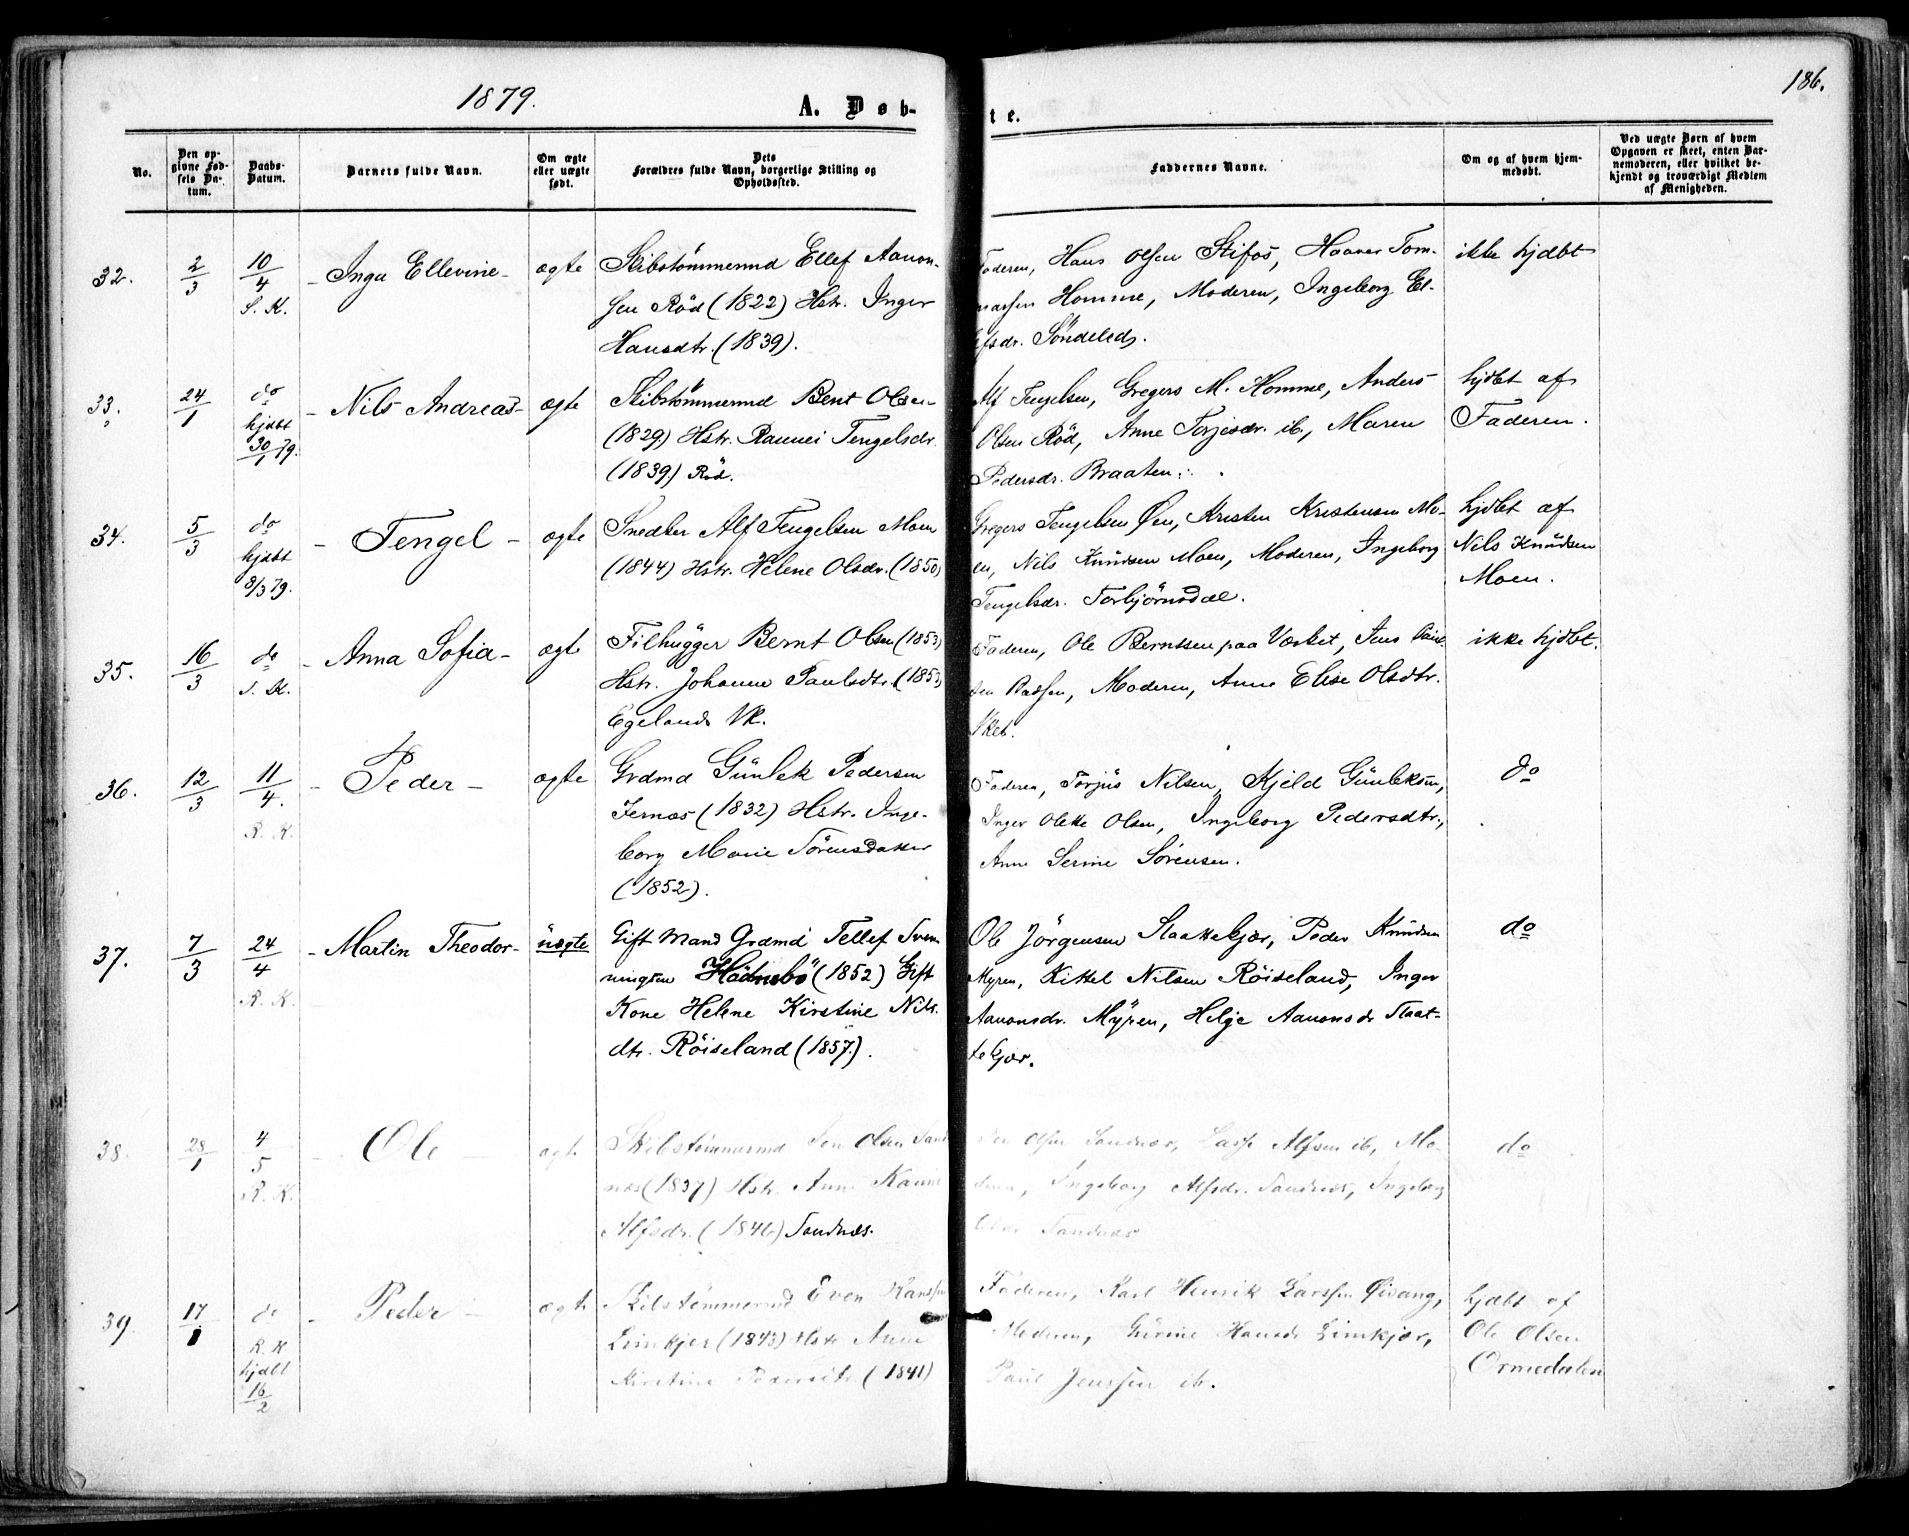 1879.
186.
A. Døb-
te.
No.
Den opgivne Fødsels Datum.
Daabs Datum.
Barnets fulde Navn.
Om ægte eller uægte født.
Dets Forældres fulde Navn, borgerlige Stilling og Opholdssted.
Faddernes Navne.
Om og af hvem hjemmedøbt.
Ved uægte Børn af hvem Opgaven er skeet, enten Barnemoderen, eller hvilket bekjendt og troværdigt Medlem af Menigheden.
32. 2/3 10/4 S. K. - Inga Ellevine - ægte
Skibstömmermd Ellef Aanon-
sen Röd (1822) Hstr. Inger
Hansdtr. (1839).
Faderen, Hans Olsen Stifos, Haaver Tom-
massen Homme, Moderen, Ingeborg El-
lefsdr. Söndeled.
ikke hjdbt
33. 24/1 do hjdbt 30/1 79. - Nils Andreas - ægte
Skibstömmermd Bent Olsen
(1829) Hstr. Rannei Tengelsdr.
(1839.) Röd.
Alf Tengelsen, Gregers M. Homme, Anders
Olsen Röd, Anne Torjesdr. ib., Maren
Pedersdr. Braaten.
hjdbt af
Faderen.
34. 5/3 do hjdbt 8/3 79. - Tengel - ægte
Snedker Alf Tengelsen Moen
(1844) Hstr. Helene Olsdr. (1850)
Gregers Tengelsen Øen, Kristen Kristensen Mo-
en, Nils Knudsen Moen, Moderen, Ingeborg
Tengelsdr. Torbjörnsdal.
hjdbt af
Nils Knudsen
Moen.
35. 16/3 do S. K. - Anna Sofia - ægte
Filhugger Bernt Olsen (1853)
Hstr. Johanne Paulsdtr. (1853)
Egelands Vk.
Faderen, Ole Berntsen paa Værket, Jens
sen Bassen, Moderen, Anne Elise Olsdtr.
Vket.
ikke hjdbt.
36. 12/3 11/4. R. K. - Peder - ægte
Grdmd Gunlek Pedersen
Jernæs (1832) Hstr. Inge-
borg Marie Sörensdatter
(1852).
Faderen, Torjus Nilsen, Kjeld Gunleksen,
Inger Olette Olsen, Ingeborg Pedersdtr.,
Anne Serine Sörensen.
do
37. 7/3 24/4 R. K. - Martin Theodor - uægte
Gift Mand Grdmd Tellef Sven-
ningsen Hödnebö (1852) Gift
Kone Helene Kirstine Nils-
dtr. Röiseland (1857.).
Ole Jörgensen Slaattekjær, Peder Knudsen
Myren, Kittel Nilsen Röiseland, Inger
Aanonsdr. Myren, Helje Aanonsdr Slaat-
tekjær.
do
38. 28/1 4/5 R. K. - Ole - ægte
Skibstömmermd Jen Olsen Sand-
næs (1837) Hstr. Anne Karine
Alfsdr. (1846) Sandnæs.
Jen Olsen Sandnæs, Lasse Alfsen ib, Mo-
deren, Ingeborg Alfsdr. Sandnæs, Ingeborg
Olsdr Sandnæs
do
39 17/1 do R. K hjdbt 16/2 - Peder - ægte
Skibstömmermd Even Hanssen
Limkjer (1843) Hstr Anne
Kirstine Pedersdtr. (1841)
Faderen, Karl Henrik Larssen Öisang,
Moderen, Gurine Hansdr Limkjær,
Paul Jenssen ib.
hjdbt af
Ole Olsen
Ormedalen